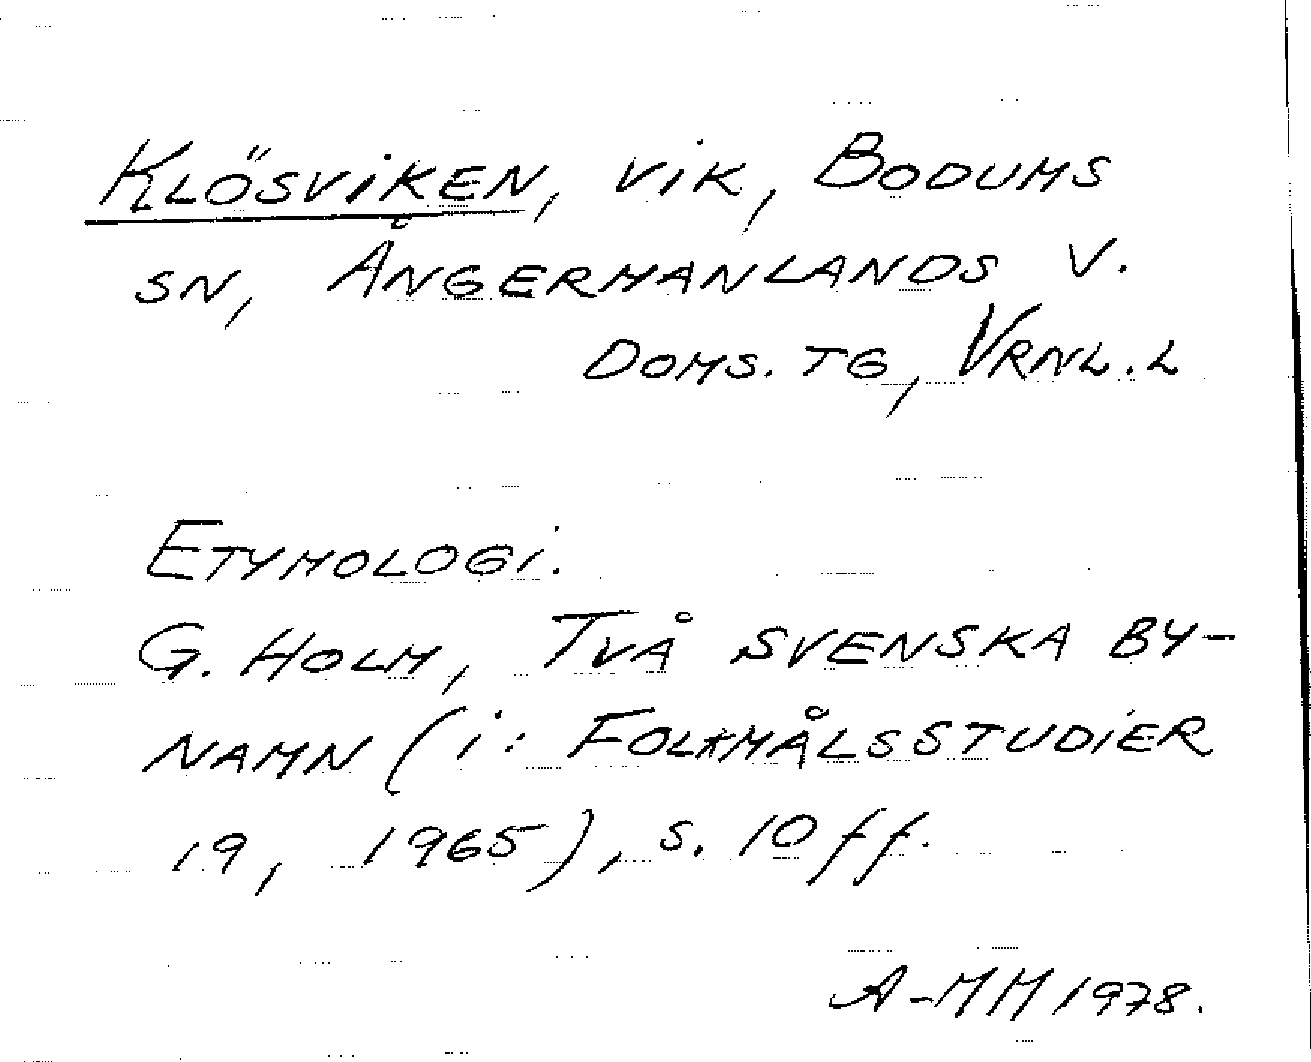 Klösviken, vik, Bodums
sn, Ångermanlands v.
Doms. tg, Vrnl. l
Etymologi.
G. Holm, Två svenska by-
namn (i: Folkmålsstudier
19, 1965), s. 10 ff.
A-MM 1978.